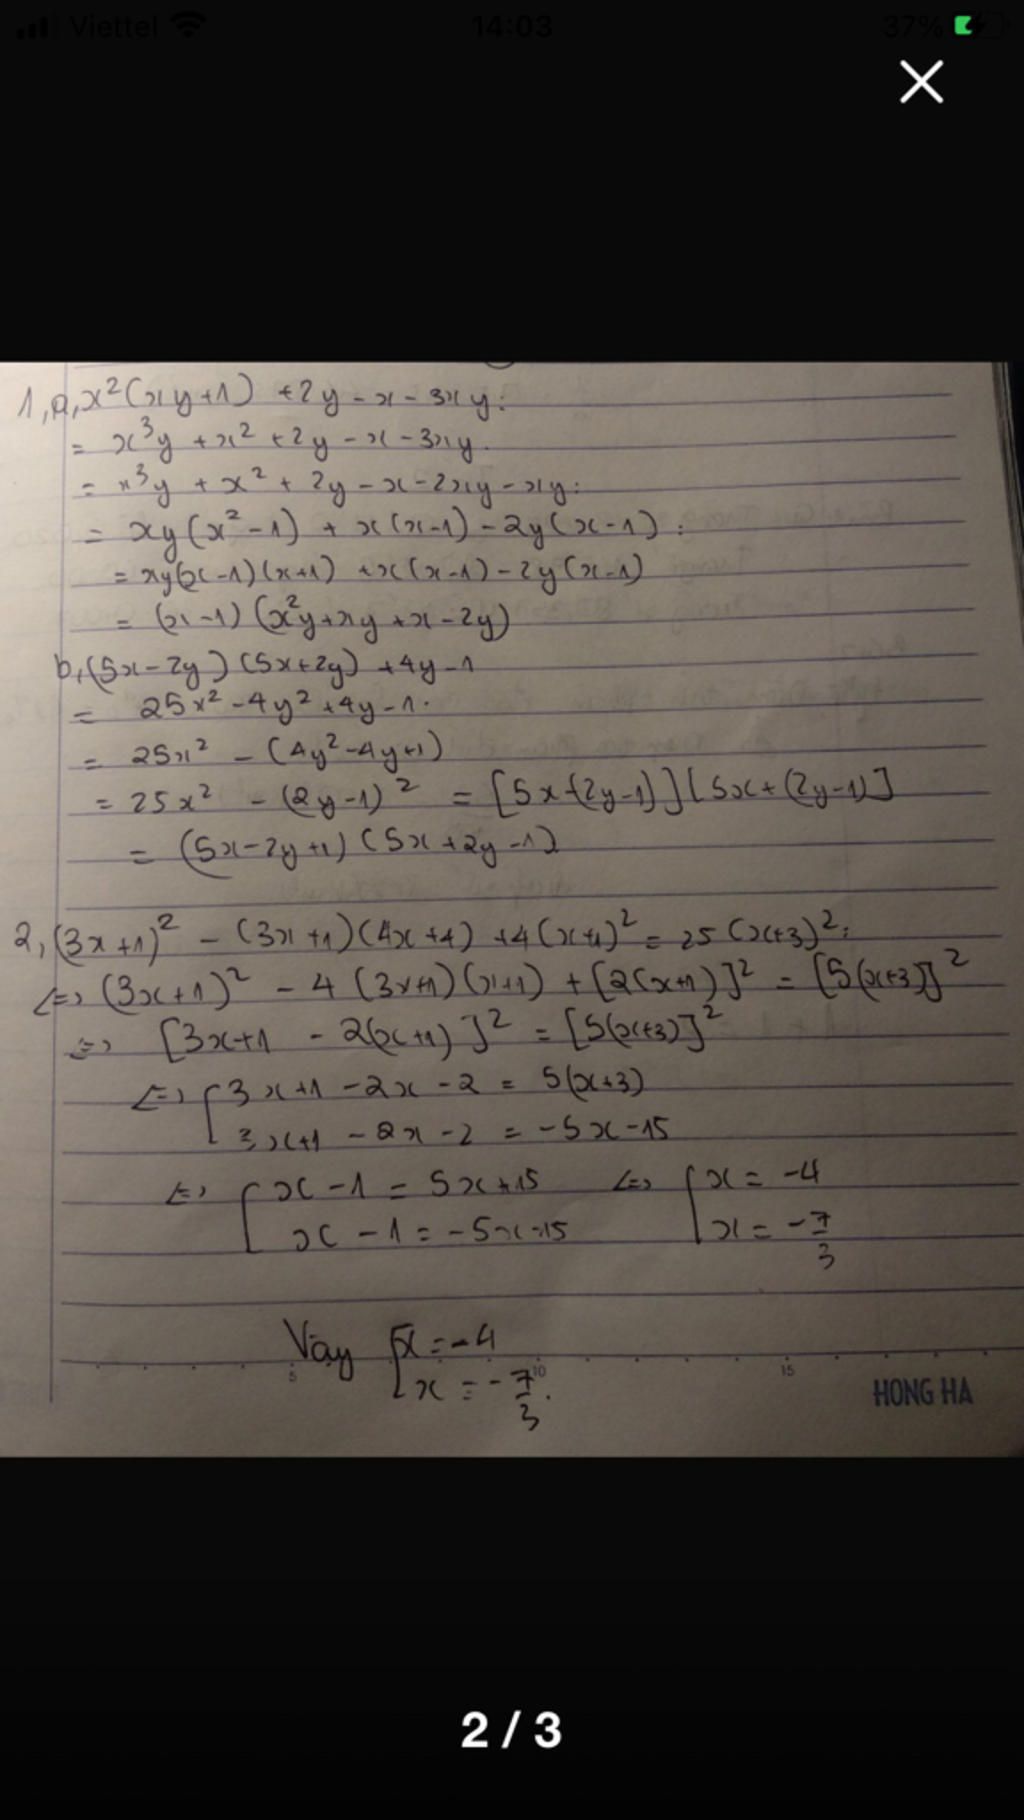 Viettel 14:03 37%
1, a, x²(xy+1) +2y-x-3xy:
= x³y + x² +2y - x - 3xy.
= x³y + x² + 2y - x - 2xy - xy:
= xy(x²-1) + x(x-1) - 2y(x-1):
= xy(x-1)(x+1) + x(x-1) - 2y(x-1)
= (x-1) (x²y+xy+x-2y)
b, (5x-2y) (5x+2y) +4y-1
= 25x² -4y² +4y-1.
= 25x² - (4y²-4y+1)
= 25x² - (2y-1)² = [5x-(2y-1)][5x+(2y-1)]
= (5x-2y+1) (5x+2y-1)
2, (3x+1)² - (3x+1)(4x+4) +4(x+1)² = 25(x+3)²:
<=> (3x+1)² - 4(3x+1)(x+1) + [2(x+1)]² = [5(x+3)]²
=> [3x+1 - 2(x+1)]² = [5(x+3)]²
<=> [3x+1-2x-2 = 5(x+3)
3x+1-2x-2 = -5x-15
<=> [x-1 = 5x+15 <=> [x = -4
x-1 = -5x-15 x = -7/3
Vậy [x = -4
x = -7/3.
5 10 15
HONG HA
2 / 3